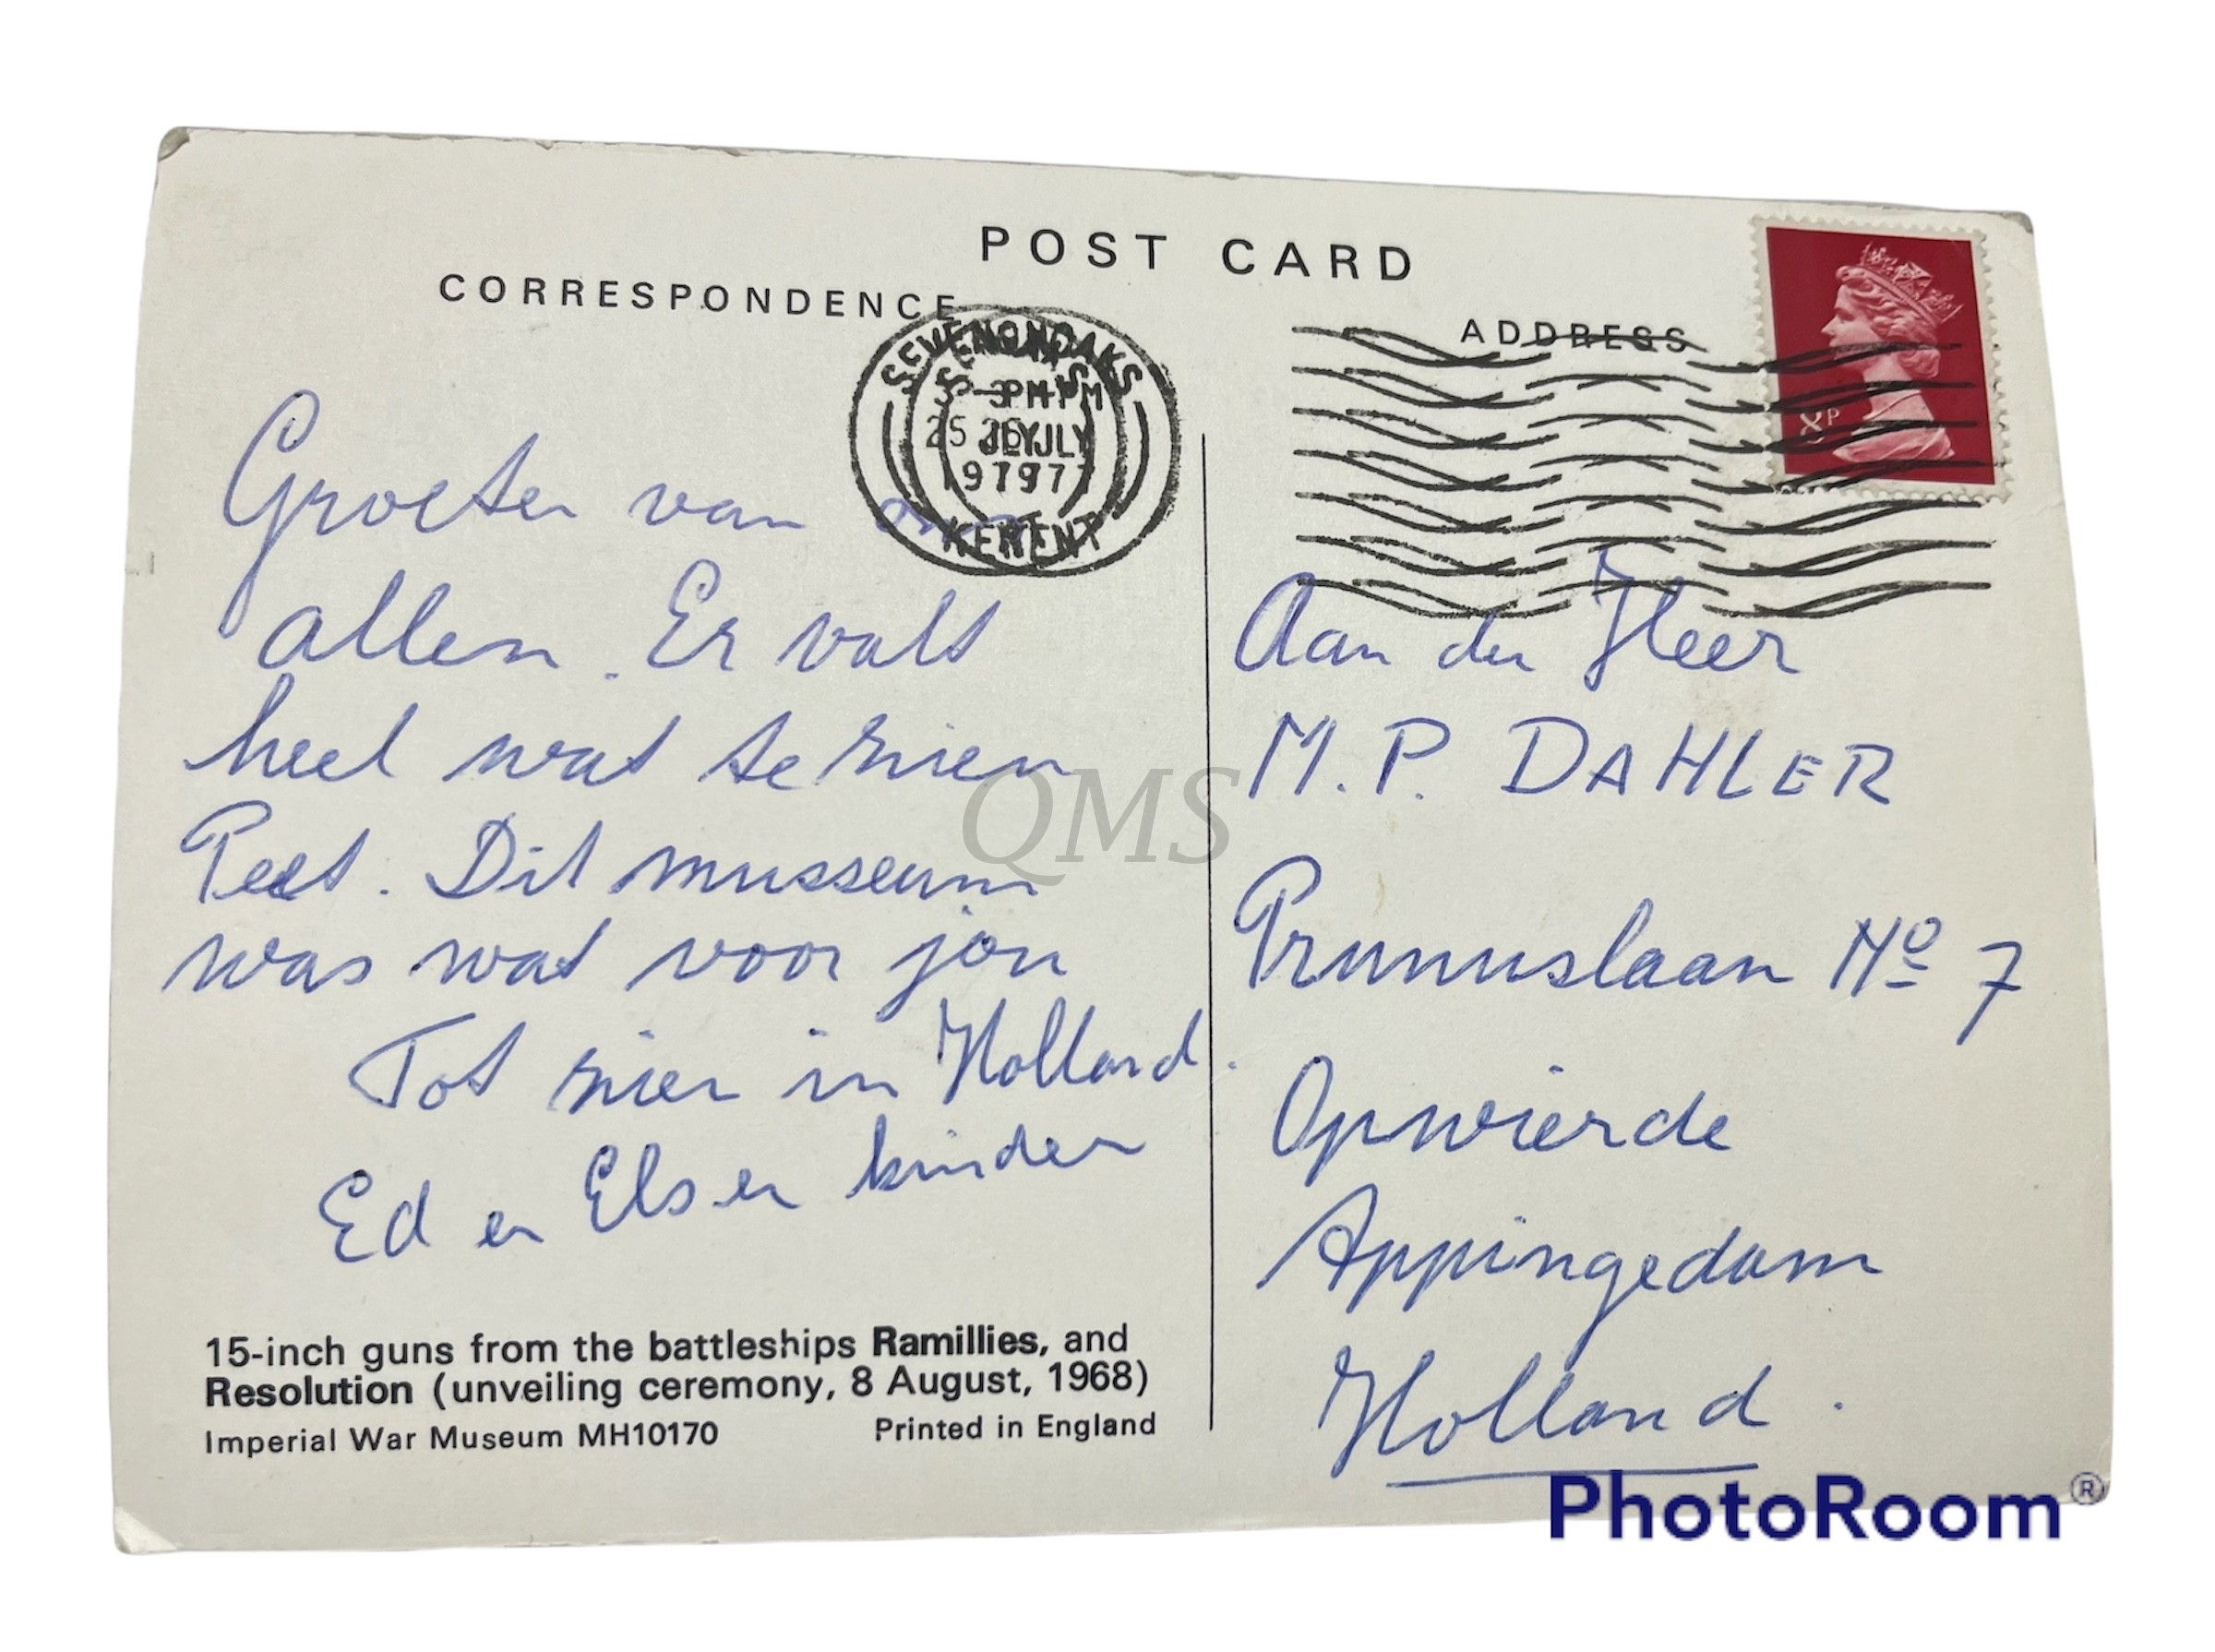 POST CARD
CORRESPONDENCE
ADDRESS
SEVENOAKS
KENT
8P
Groeten van ons
allen. Er valt
heel wat te zien
Peet. Dit musseum
was wat voor jou
Tot zien in Holland.
Ed en Els en kinder
Aan den Heer
M.P. DAHLER
Prunuslaan No 7
Opwierde
Appingedam
Holland.
15-inch guns from the battleships Ramillies, and
Resolution (unveiling ceremony, 8 August, 1968)
Imperial War Museum MH10170 Printed in England
QMS
PhotoRoom®